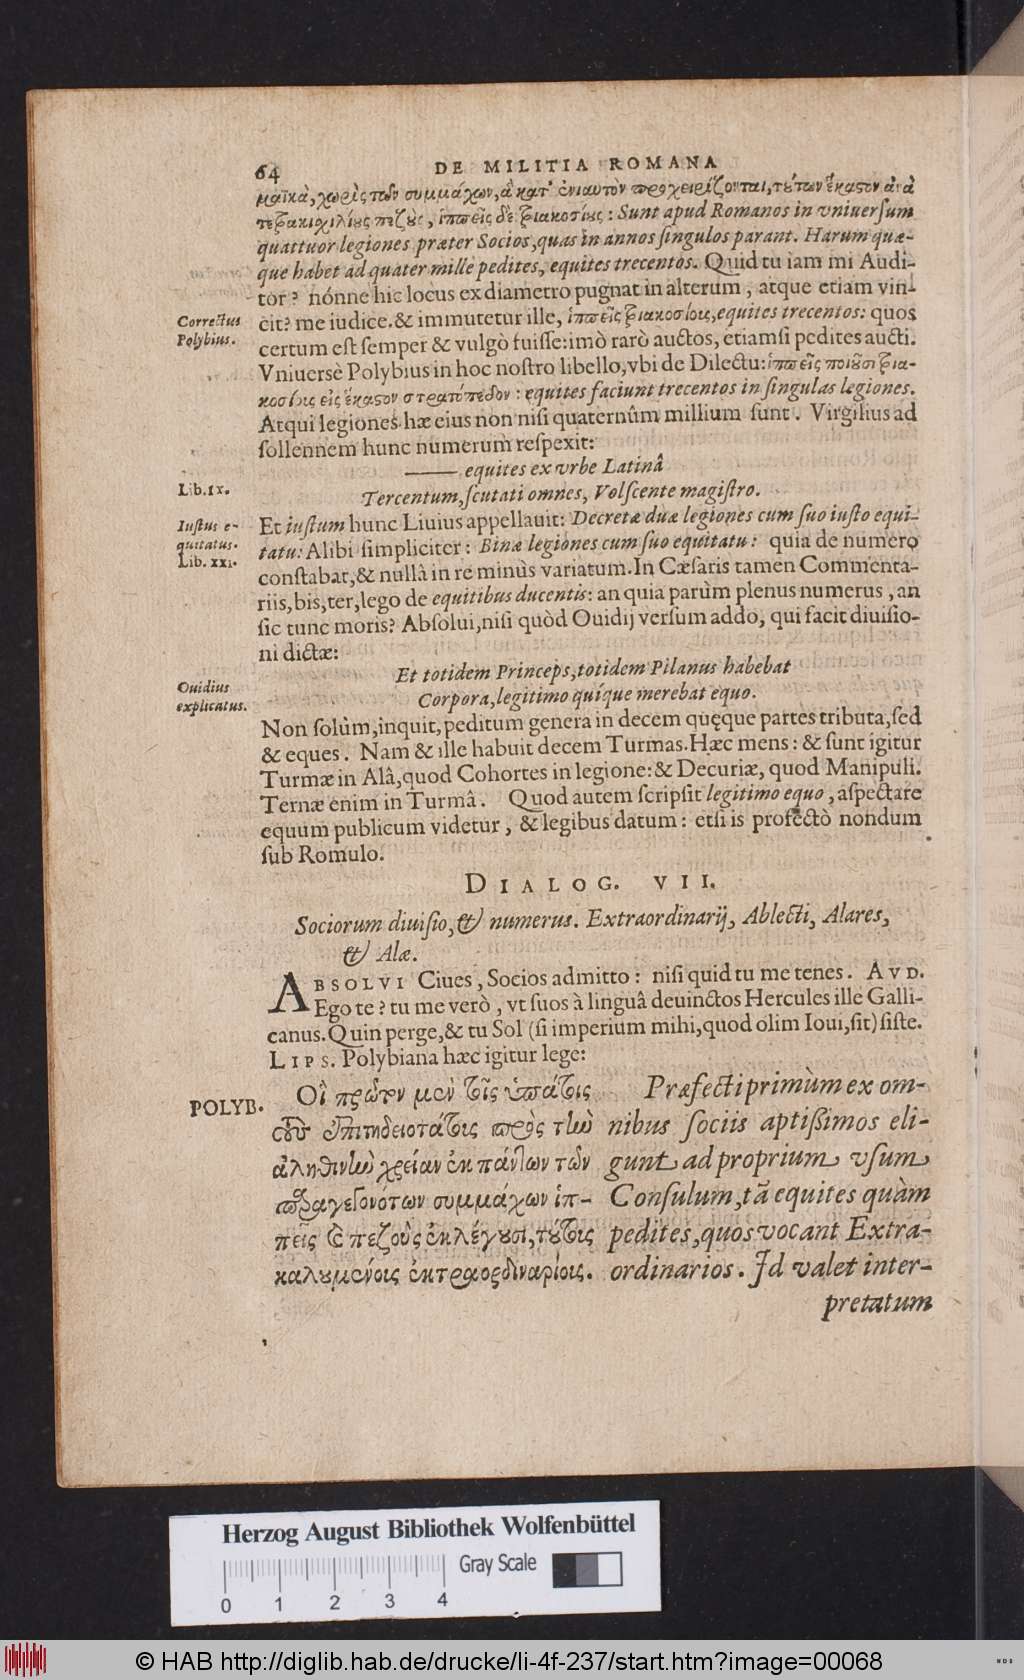 64
DE MILITIA ROMANA
μαϊκὰ, χωρὶς τῶν συμμάχων, ἃ κατ' ἐνιαυτὸν προχειρίζονται, τούτων ἕκαστον ἀνὰ
τετρακισχιλίους πεζοὺς, ἱππεῖς δὲ τριακοσίους: Sunt apud Romanos in vniuersum
quattuor legiones præter Socios, quas in annos singulos parant. Harum quæ-
que habet ad quater mille pedites, equites trecentos. Quid tu iam mi Audi-
tor? nónne hic locus ex diametro pugnat in alterum, atque etiam vin-
Correctus
Polybius.
cit? me iudice. & immutetur ille, ἱππεῖς τριακοσίοις, equites trecentos: quos
certum est semper & vulgò fuisse: imò rarò auctos, etiamsi pedites aucti.
Vniuersè Polybius in hoc nostro libello, vbi de Dilectu: ἱππεῖς ποιοῦσι τρια-
κοσίοις εἰς ἕκαστον στρατόπεδον: equites faciunt trecentos in singulas legiones.
Atqui legiones hæ eius non nisi quaternûm millium sunt. Virgilius ad
sollennem hunc numerum respexit:
—— equites ex vrbe Latinâ
Lib. IX.
Tercentum, scutati omnes, Volscente magistro.
Iustus e-
quitatus.
Lib. XXI.
Et iustum hunc Liuius appellauit: Decretæ duæ legiones cum suo iusto equi-
tatu: Alibi simpliciter: Binæ legiones cum suo equitatu: quia de numero
constabat, & nullâ in re minùs variatum. In Cæsaris tamen Commenta-
riis, bis, ter, lego de equitibus ducentis: an quia parùm plenus numerus, an
sic tunc moris? Absolui, nisi quòd Ouidij versum addo, qui facit diuisio-
ni dictæ:
Ouidius
explicatus.
Et totidem Princeps, totidem Pilanus habebat
Corpora, legitimo quíque merebat equo.
Non solùm, inquit, peditum genera in decem quęque partes tributa, sed
& eques. Nam & ille habuit decem Turmas. Hæc mens: & sunt igitur
Turmæ in Alâ, quod Cohortes in legione: & Decuriæ, quod Manipuli.
Ternæ enim in Turmâ. Quod autem scripsit legitimo equo, aspectare
equum publicum videtur, & legibus datum: etsi is profectò nondum
sub Romulo.
DIALOG. VII.
Sociorum diuisio, & numerus. Extraordinarij, Ablecti, Alares,
& Alæ.
ABSOLVI Ciues, Socios admitto: nisi quid tu me tenes. AVD.
Ego te? tu me verò, vt suos à linguâ deuinctos Hercules ille Galli-
canus. Quin perge, & tu Sol (si imperium mihi, quod olim Ioui, sit) siste.
LIPS. Polybiana hæc igitur lege:
POLYB.
Οἳ πρῶτον μὲν τοῖς ὑπάτοις
τοὺς ἐπιτηδειοτάτοις πρὸς τὴν
ἀληθινὴν χρείαν ἐκ πάντων τῶν
παραγεγονότων συμμάχων ἱπ-
πεῖς & πεζοὺς ἐκλέγουσι, τούτοις
καλουμένοις ἐκτραορδιναρίοις.
Præfecti primùm ex om-
nibus sociis aptißimos eli-
gunt ad proprium vsum
Consulum, tã equites quàm
pedites, quos vocant Extra-
ordinarios. Id valet inter-
pretatum
Herzog August Bibliothek Wolfenbüttel
Gray Scale
0 1 2 3 4
© HAB http://diglib.hab.de/drucke/li-4f-237/start.htm?image=00068